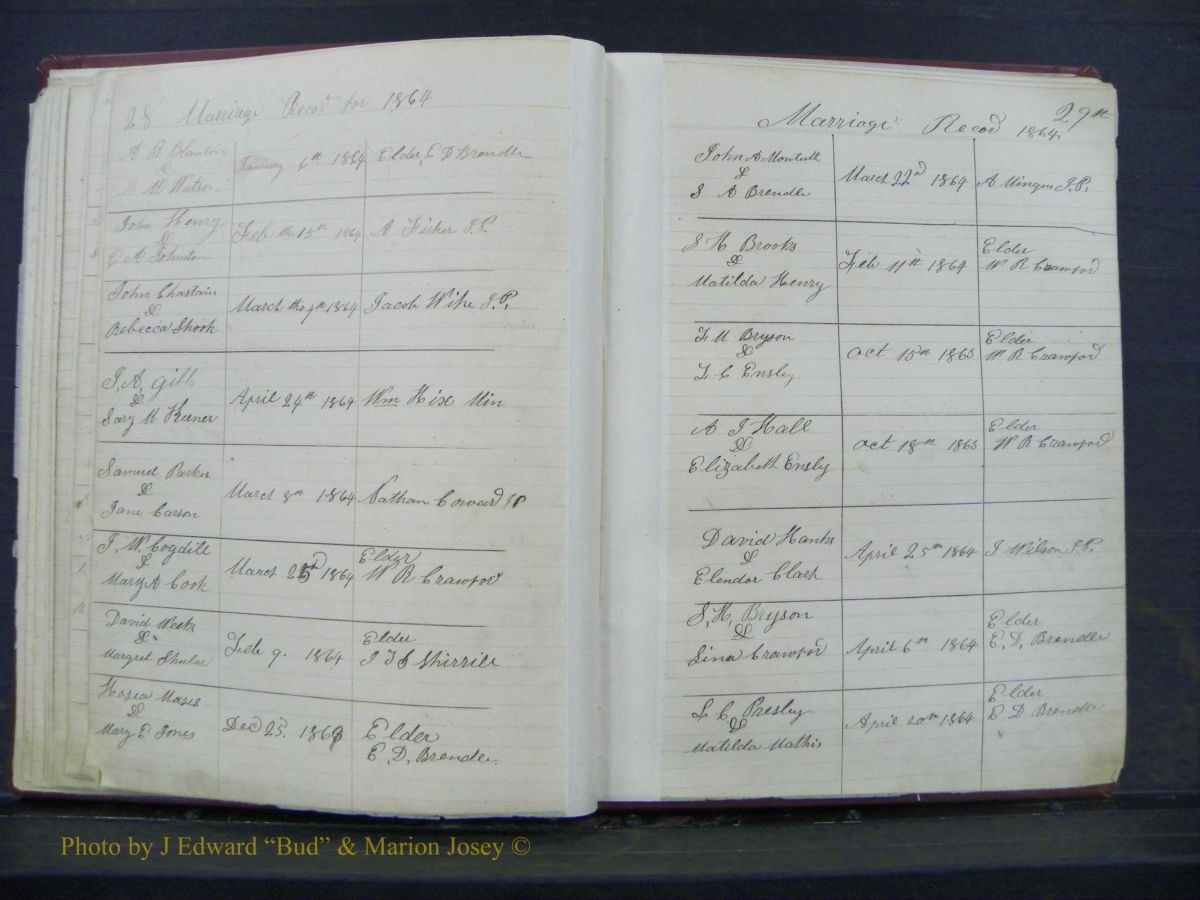 28 Marriage Record for 1864
A R Blanton
&
M Watson
January 6th 1864 Elder E D Brendle
John Henry
&
E A Johnston
Feb th 15th 1864 A Fisher J.P.
John Chastain
&
Rebecca Shook
March the 9th 1864 Jacob Wike J.P.
J. A. Gibbs
&
Sary M Keener
April 24th 1864 Wm Hix Min
Samuel Parker
&
Jane Carson
March 8th 1864 Nathan Coward JP
J. W. Cogdill
&
Mary A Cook
March 25d 1864 Elder
W R Crawford
David Weeks
&
Margret Shular
Feb 9. 1864 Elder
Shirrile
Hosea Mases
&
Mary E Jones
Decd 25. 1863 Elder
E. D. Brendle.
29th
Marriage Record 1864
John A Monteith
&
S A Brendle
March 22d 1864 A Mingus J.P.
S H Brooks
&
Matilda Henry
Feb 11th 1864 Elder
W R Crawford
&
Bryson
L C Ensley
Oct 15th 1863 Elder
W R Crawford
A J Hall
&
Elizabeth Ensly
Oct 18th 1863 Elder
W R Crawford
David Hanks
&
Elendor Clark
April 25th 1864 J Wilson J.P.
S. H. Bryson
&
Lina Crawford
April 6th 1864 Elder
E. D. Brendle
L C Presley
&
Matilda Mathis
April 20th 1864 Elder
E D Brendle
Photo by J Edward “Bud” & Marion Josey ©